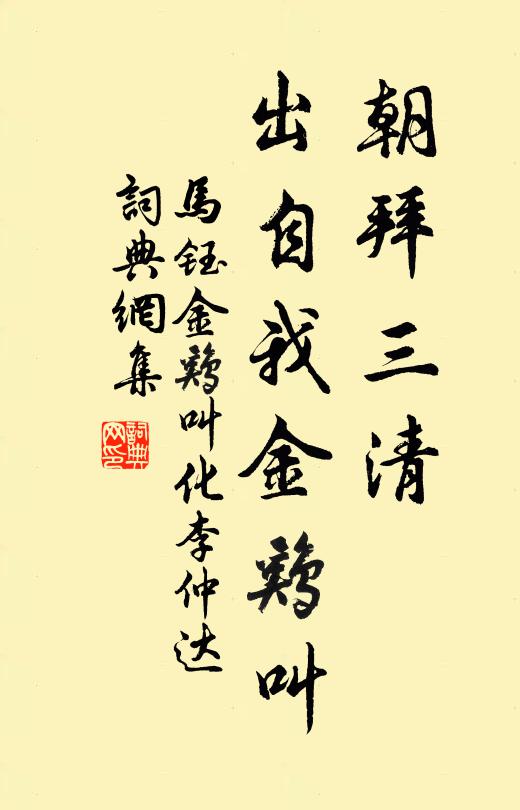 朝拜三清
出自我金鷄叫
馬鈺金鷄叫化李仲达
詞典網集
詞典
网印